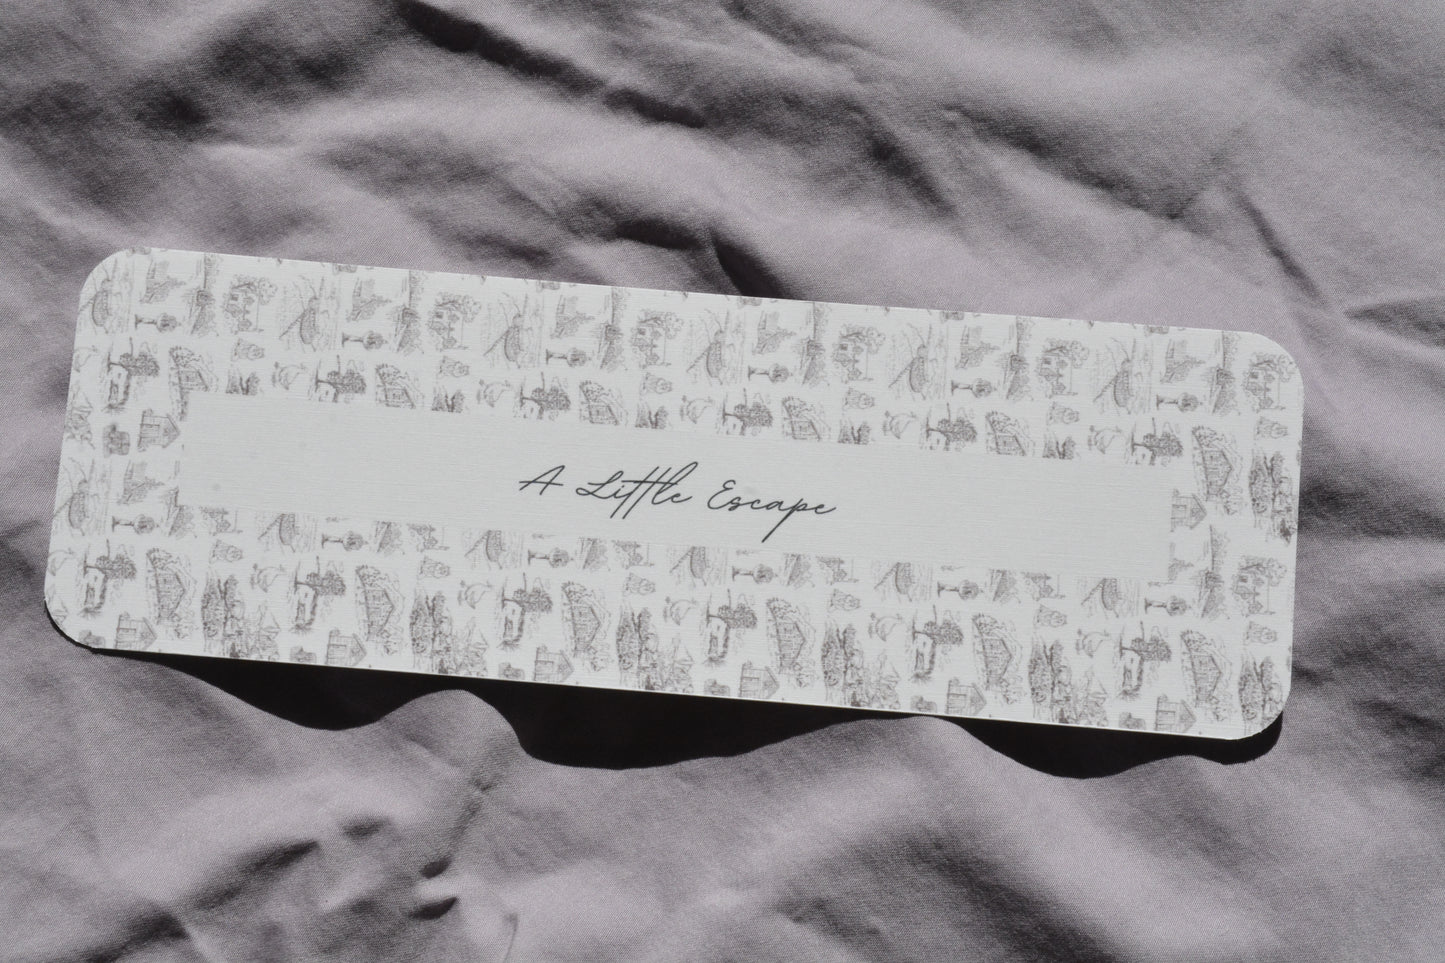 A Little Escape